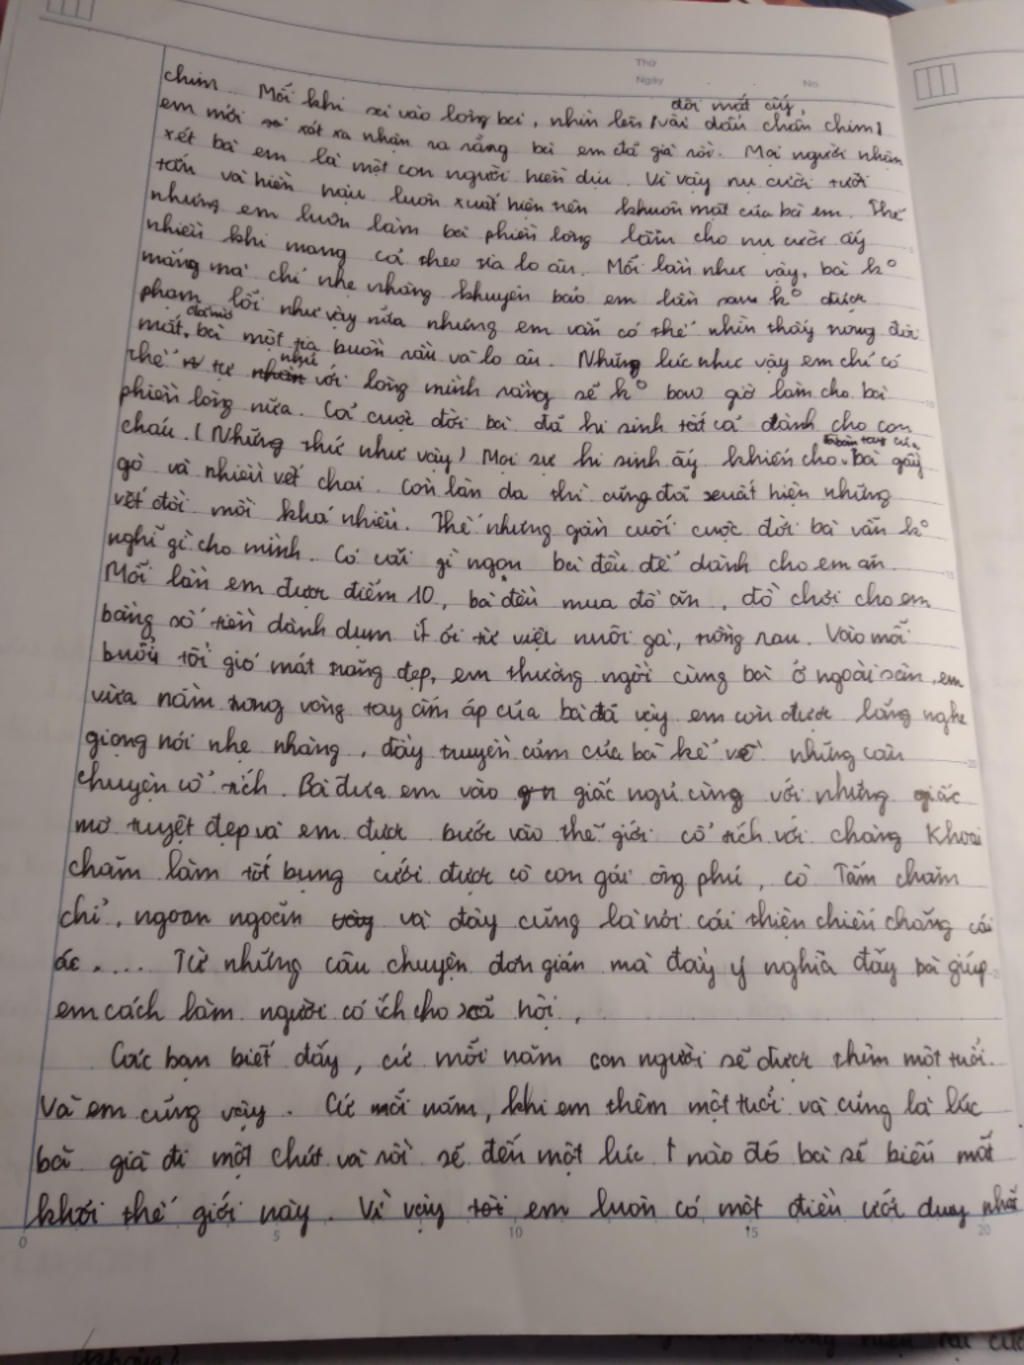 Thứ
Ngày No
chim. Mỗi khi sà vào lòng bà, nhìn lên đôi mắt ấy, (vài dấu chân chim)
em mới xót xa nhận ra rằng bà em đã già rồi. Mọi người nhận
xét bà em là một con người hiền dịu. Vì vậy nụ cười tươi
tắn và hiền hậu luôn xuất hiện trên khuôn mặt của bà em. Thế
nhưng em luôn làm bà phiền lòng làm cho nụ cười ấy
nhiều khi mang cả theo tia lo âu. Mỗi lần như vậy, bà k°
mắng mà chỉ nhẹ nhàng khuyên bảo em lần sau k° được
phạm lỗi như vậy nữa nhưng em vẫn có thể nhìn thấy trong đôi
mắt bà một tia buồn rầu và lo âu. Những lúc như vậy em chỉ có
thể tự nhủ với lòng mình rằng sẽ k° bao giờ làm cho bà
phiền lòng nữa. Cả cuộc đời bà đã hi sinh tất cả dành cho con
cháu. (Những thứ như vậy) Mọi sự hi sinh ấy khiến cho bàn tay của bà gầy
gò và nhiều vết chai. Còn làn da thì cũng đã xuất hiện những
vết đồi mồi khá nhiều. Thế nhưng gần cuối cuộc đời bà vẫn k°
nghĩ gì cho mình. Có cái gì ngon bà đều để dành cho em ăn.
Mỗi lần em được điểm 10, bà đều mua đồ ăn, đồ chơi cho em
bằng số tiền dành dụm ít ỏi từ việc nuôi gà, trồng rau. Vào mỗi
buổi tối gió mát trăng đẹp, em thường ngồi cùng bà ở ngoài sân, em
vừa nằm trong vòng tay ấm áp của bà đã vậy em còn được lắng nghe
giọng nói nhẹ nhàng, đầy truyền cảm của bà kể về những câu
chuyện cổ tích. Bà đưa em vào giấc ngủ cùng với những giấc
mơ tuyệt đẹp và em được bước vào thế giới cổ tích với chàng Khoai
chăm làm tốt bụng cưới được cô con gái ông phú, cô Tấm chăm
chỉ, ngoan ngoãn và đây cũng là nơi cái thiện chiến thắng cái
ác.... Từ những câu chuyện đơn giản mà đầy ý nghĩa đấy bà giúp
em cách làm người có ích cho xã hội.
Các bạn biết đấy, cứ mỗi năm con người sẽ được thêm một tuổi.
Và em cũng vậy. Cứ mỗi năm, khi em thêm một tuổi và cũng là lúc
bà già đi một chút và rồi sẽ đến một lúc nào đó bà sẽ biến mất
khỏi thế giới này. Vì vậy em luôn có một điều ước duy nhất
0 5 10 15 20